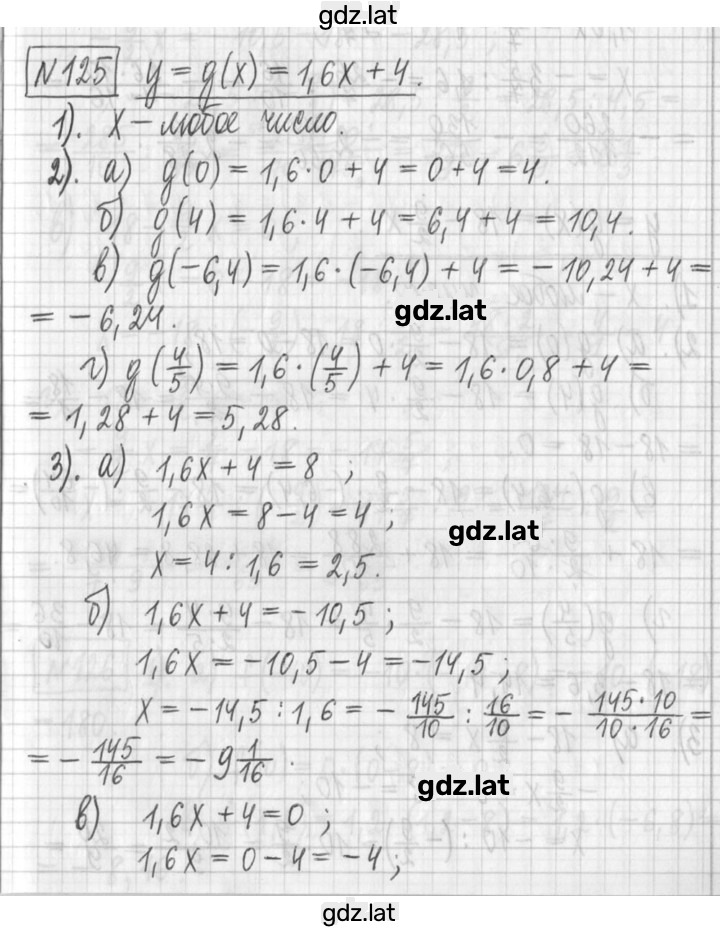 gdz.lat
N125 y = g(x) = 1,6x + 4.
1). x – любое число.
2). а) g(0) = 1,6·0 + 4 = 0 + 4 = 4.
б) g(4) = 1,6·4 + 4 = 6,4 + 4 = 10,4.
в) g(−6,4) = 1,6·(−6,4) + 4 = −10,24 + 4 =
= −6,24.
gdz.lat
г) g(4/5) = 1,6·(4/5) + 4 = 1,6·0,8 + 4 =
= 1,28 + 4 = 5,28.
3). а) 1,6x + 4 = 8 ;
1,6x = 8 − 4 = 4 ;
gdz.lat
x = 4 : 1,6 = 2,5.
б) 1,6x + 4 = −10,5 ;
1,6x = −10,5 − 4 = −14,5 ;
x = −14,5 : 1,6 = − 145/10 : 16/10 = − 145·10/10·16 =
= − 145/16 = − 9 1/16 .
gdz.lat
в) 1,6x + 4 = 0 ;
1,6x = 0 − 4 = −4 ;
gdz.lat